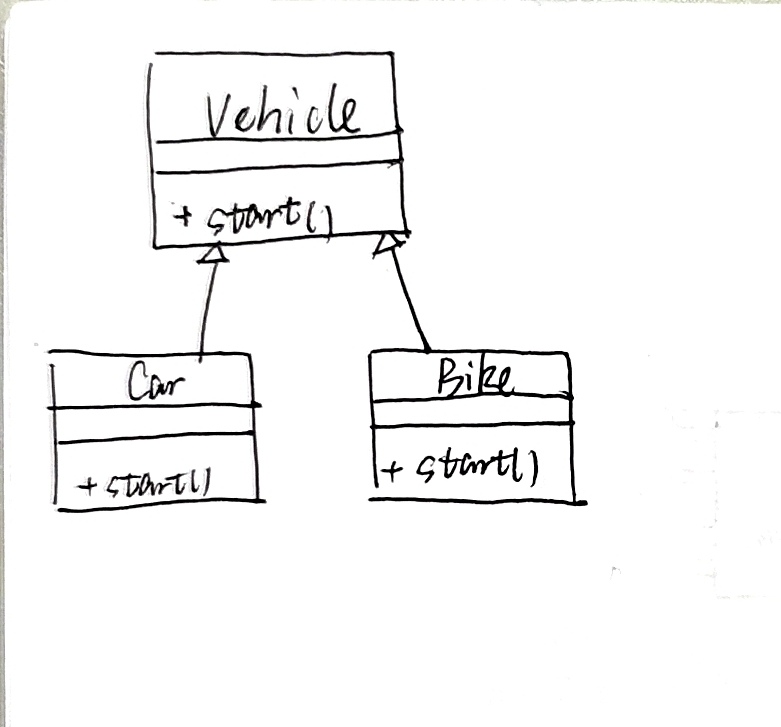 Vehicle
+ start()
Car
+ start()
Bike
+ start()